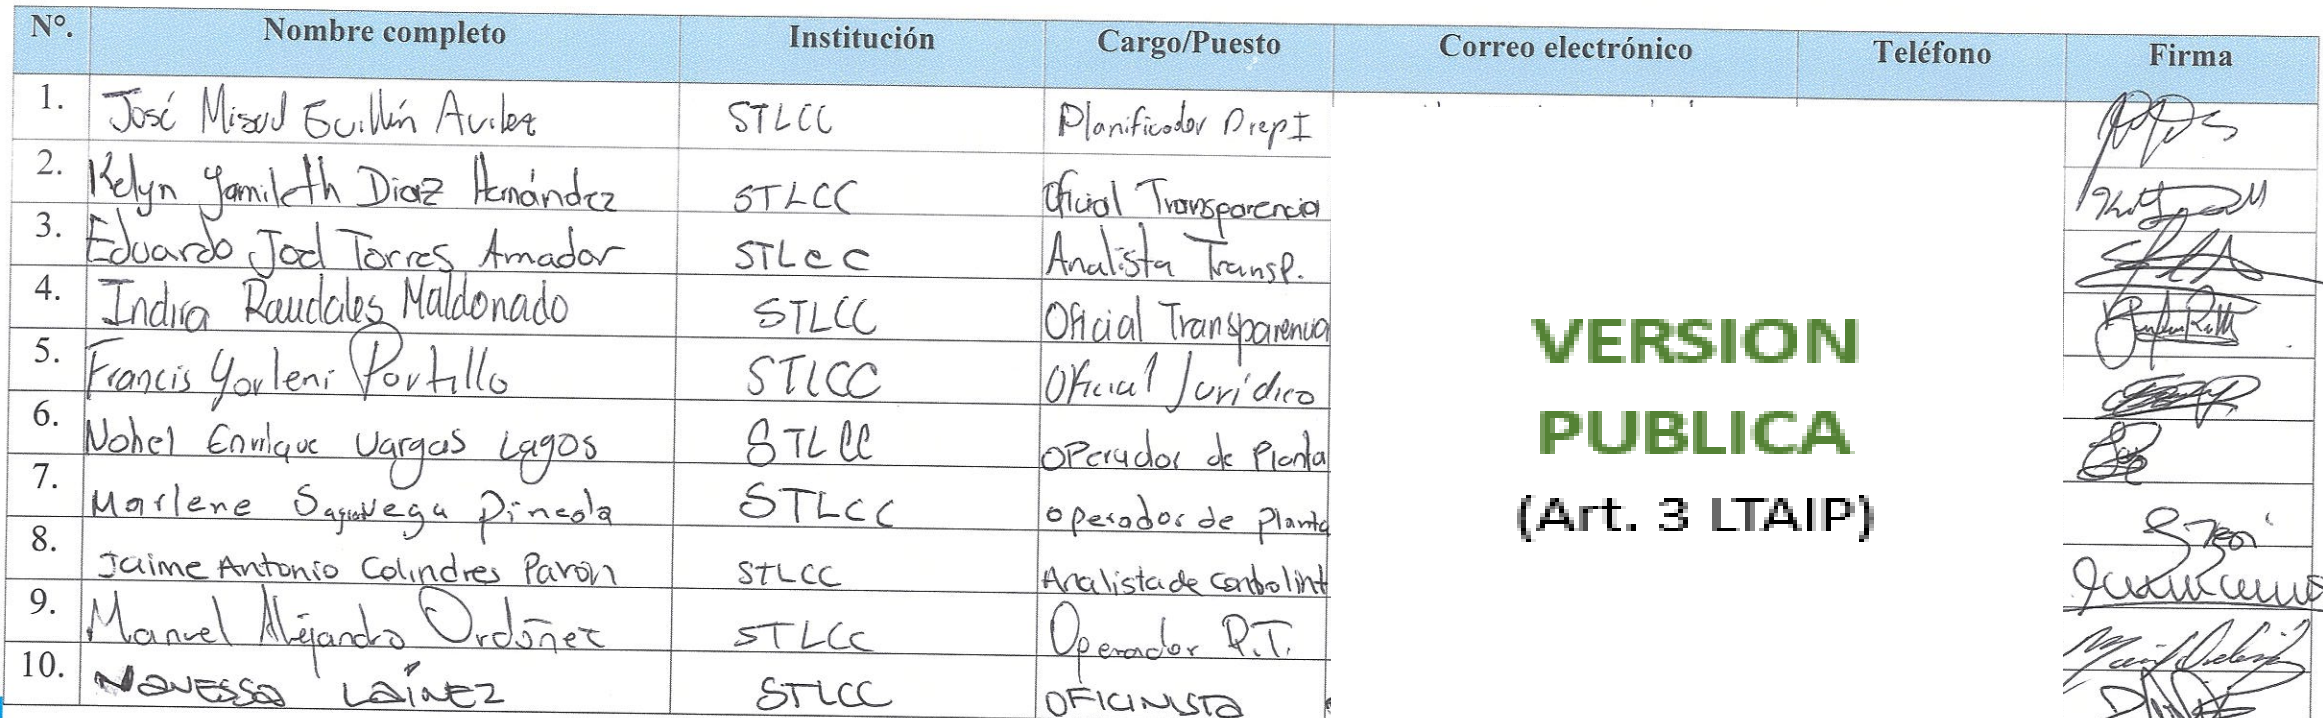 N°. Nombre completo Institución Cargo/Puesto Correo electrónico Teléfono Firma
1. José Misuel Guillín Avilez STLCC Planificador Prep I
2. Kelyn Yamileth Diaz Hernández STLCC Oficial Transparencia
3. Eduardo Joel Torres Amador STLCC Analista Transp.
4. Indira Raudales Maldonado STLCC Oficial Transparencia
5. Francis Yorleni Portillo STLCC Oficial Jurídico
6. Nohel Enrique Vargas Lagos STLCC Operador de Planta
7. Marlene Pineda STLCC operador de planta
8. Jaime Antonio Colindres Pavon STLCC Analista de control int
9. Manuel Alejandro Ordóñez STLCC Operador P.T.
10. Vanessa Laínez STLCC OFICINISTA
VERSION
PUBLICA
(Art. 3 LTAIP)